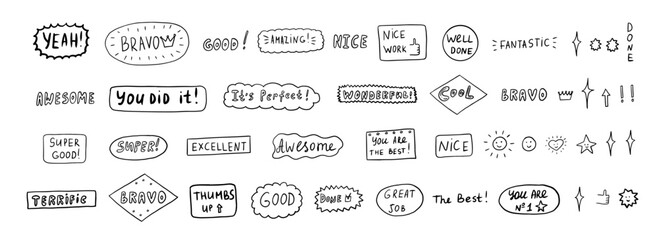 YEAH!
BRAVO
GOOD!
AMAZING!
NICE
NICE
WORK
WELL
DONE
FANTASTIC
DONE
AWESOME
YOU DID it!
It's Perfect!
WONDERFUL!
COOL
BRAVO
!!
SUPER
GOOD!
SUPER!
EXCELLENT
Awesome
YOU ARE
THE BEST!
NICE
TERRIFIC
BRAVO
THUMBS
UP
GOOD
DONE
GREAT
JOB
The Best!
YOU ARE
Nº1